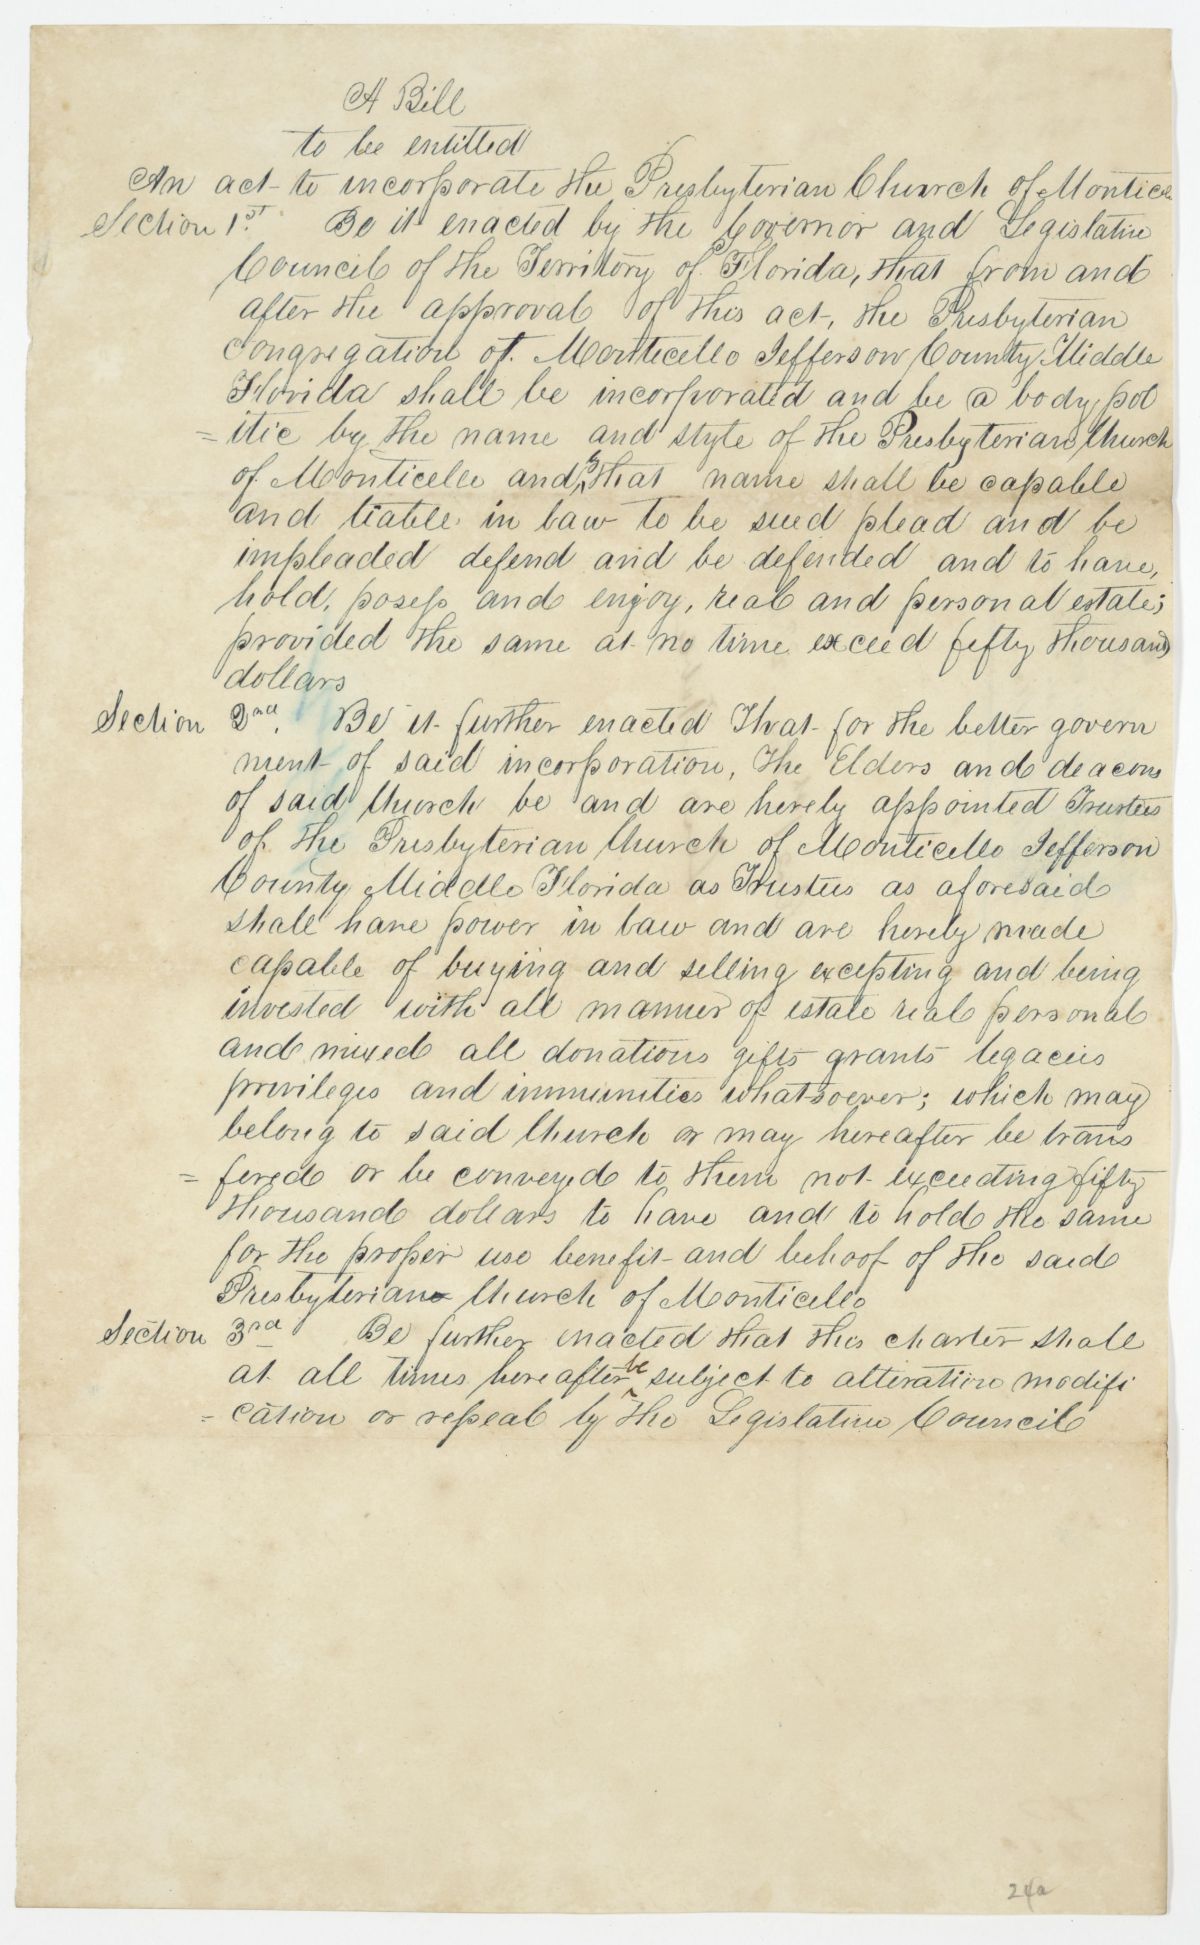 A Bill
to be entitled
An act to incorporate the Presbyterian Church of Montice
Section 1st. Be it enacted by the Governor and Legislative
Council of the Territory of Florida, that from and
after the approval of this act, the Presbyterian
Congregation of Monticello Jefferson County Middle
Florida shall be incorporated and be a body pol
= itic by the name and style of the Presbyterian Church
of Monticello and by that name shall be capable
and liable in law to be sued plead and be
impleaded defend and be defended and to have,
hold, posess and enjoy, real and personal estate;
provided the same at no time exceed fifty thousand
dollars
Section 2nd. Be it further enacted That for the better govern
ment of said incorporation, the Elders and deacons
of said Church be and are hereby appointed Trustees
of the Presbyterian Church of Monticello Jefferson
County Middle Florida as Trustees as aforesaid
shall have power in law and are hereby made
capable of buying and selling excepting and being
invested with all manner of estate real personal
and mixed all donations gifts grants legacies
privileges and immunities whatsoever; which may
belong to said Church or may hereafter be trans
= fered or be conveyed to them not exceeding fifty
thousand dollars to have and to hold the same
for the proper use benefit and behoof of the said
Presbyterian Church of Monticello
Section 3rd Be further enacted that this charter shall
at all times hereafter be subject to alteration modifi
= cation or repeal by the Legislative Council
24a